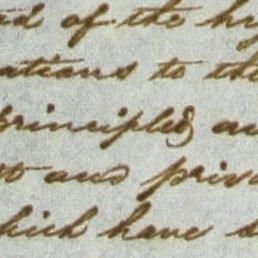 ad of the hy
ations to the
principles an
t and priva
which have s